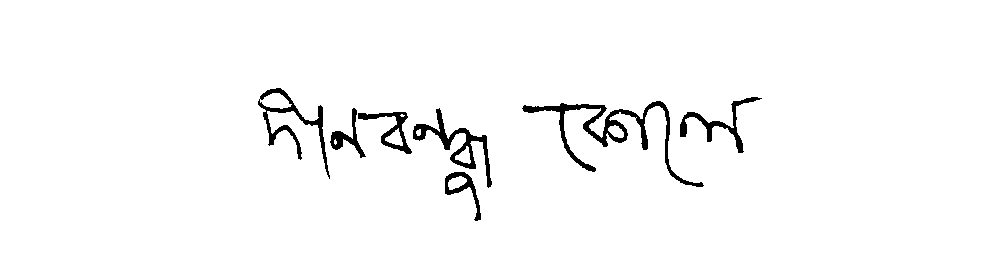 দীনবন্ধু কোলে